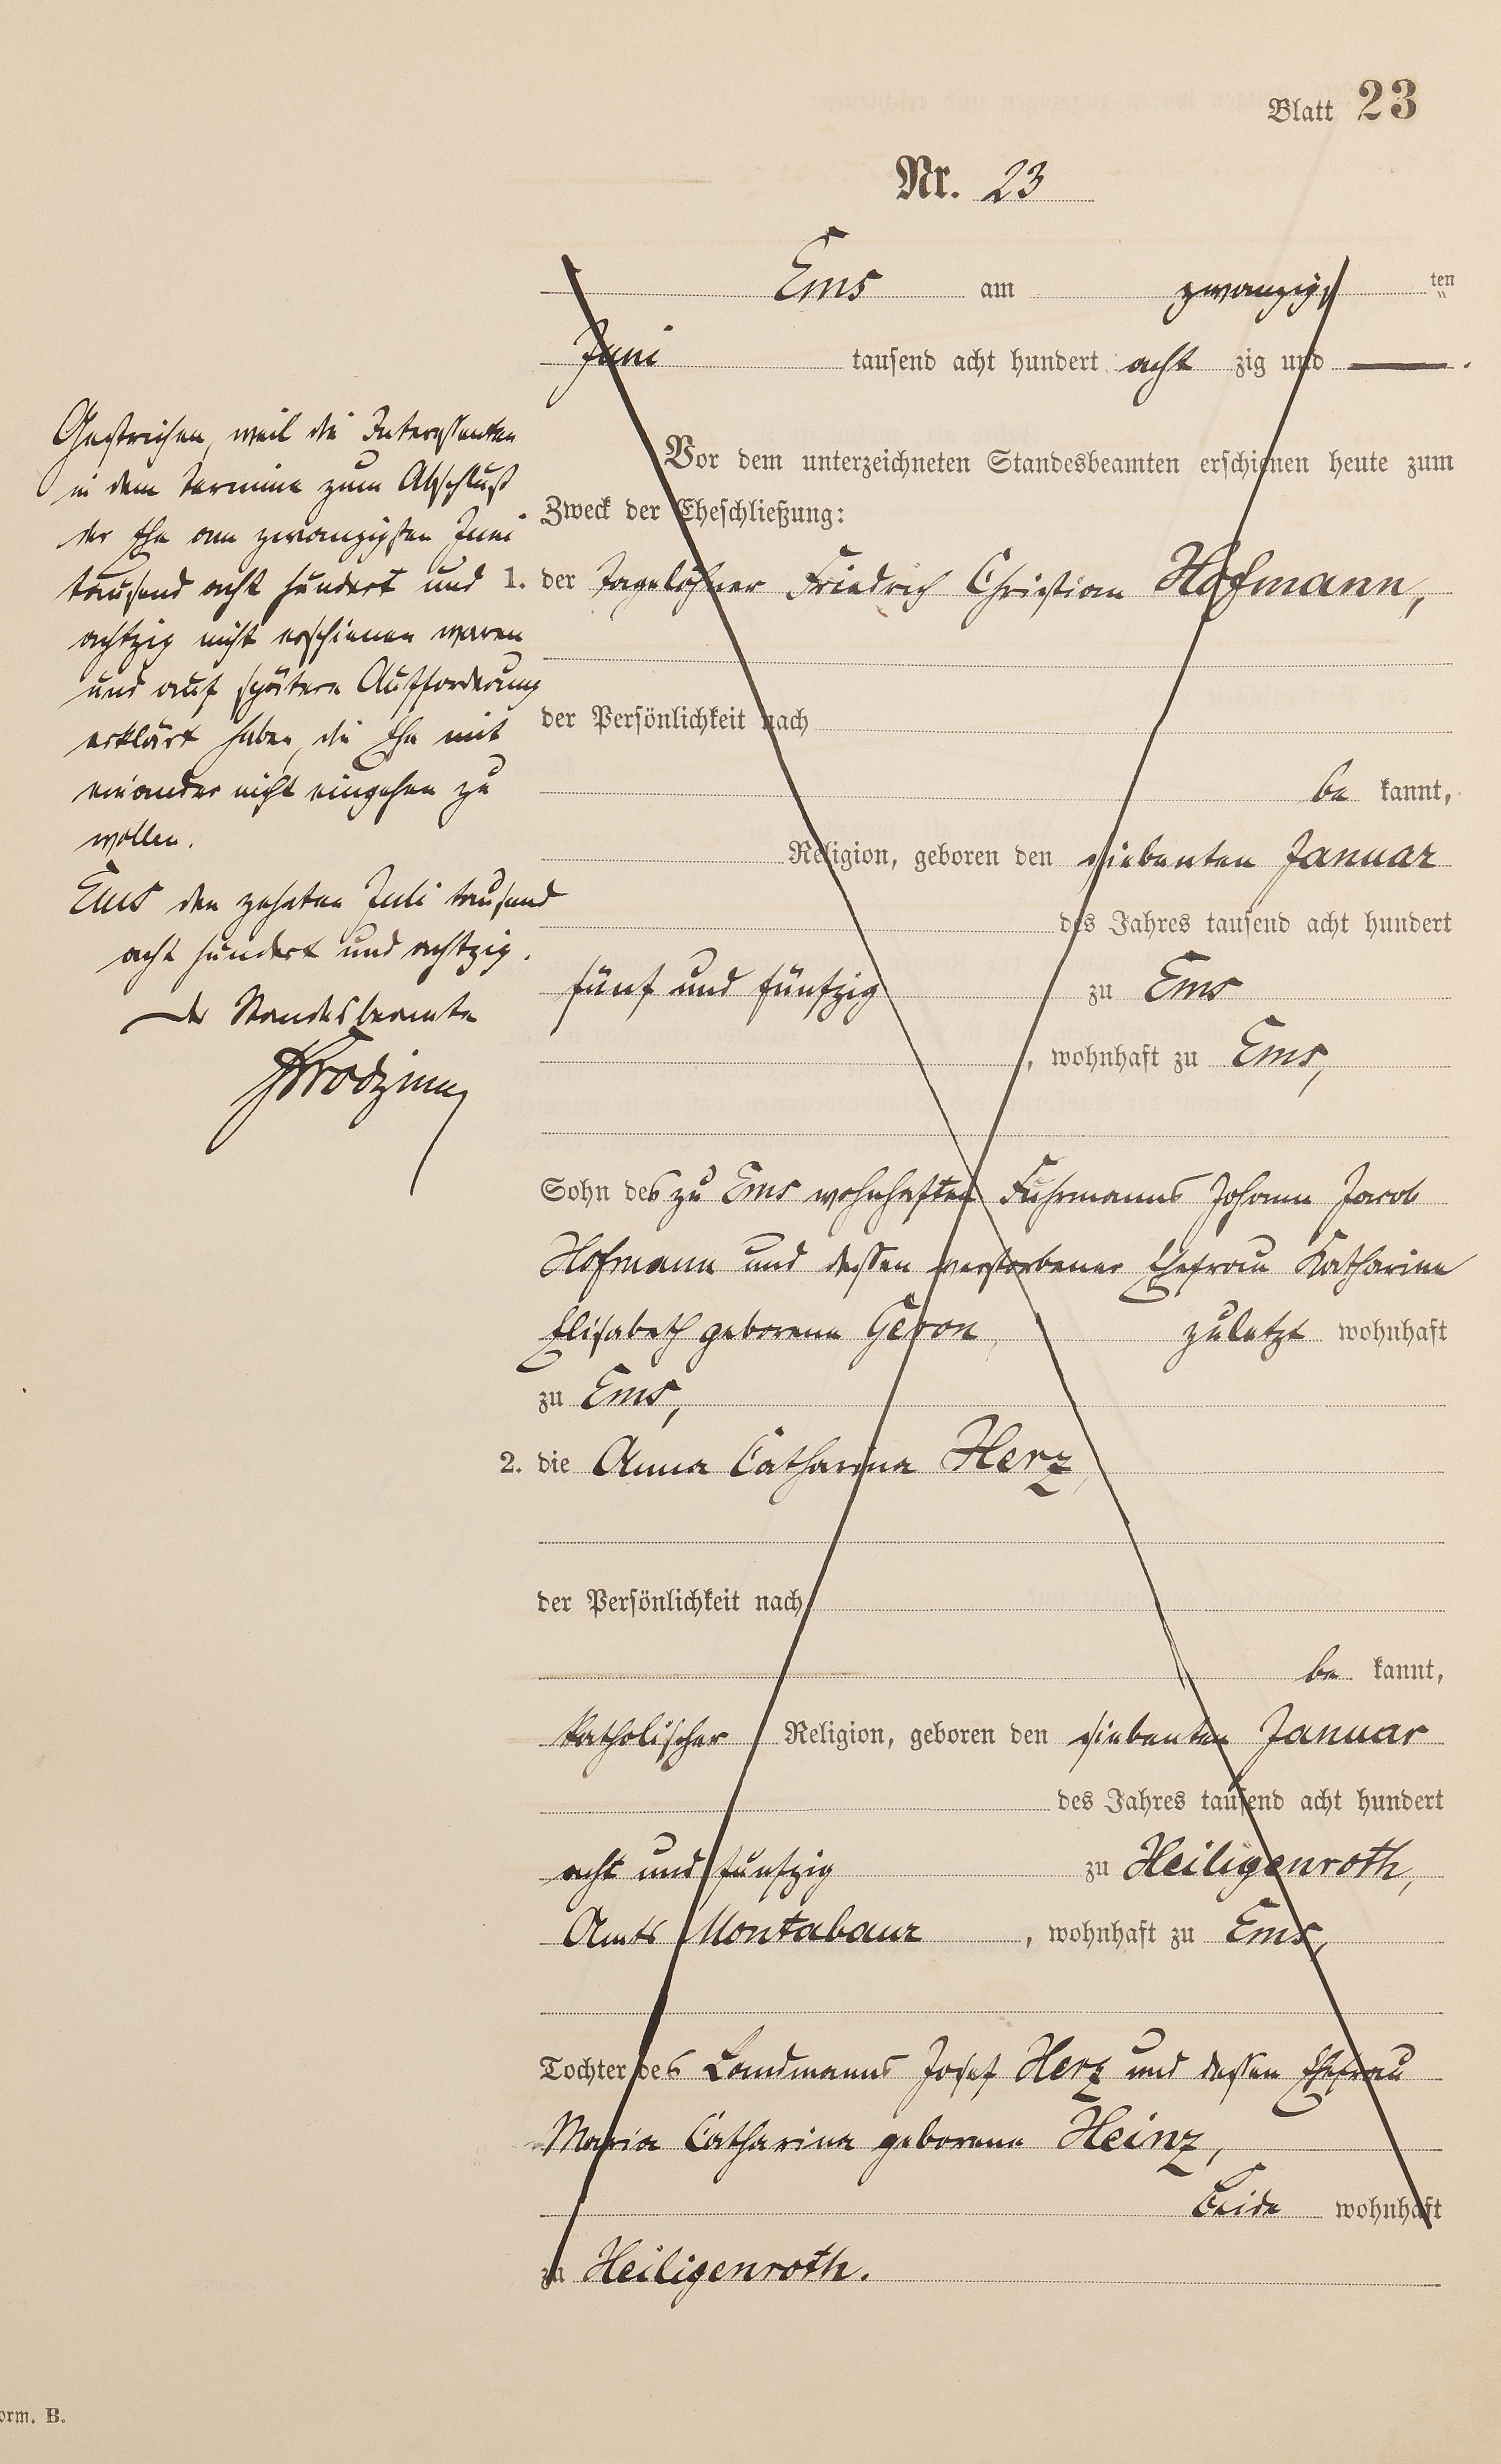 Blatt 23
Nr. 23
Ems am zwanzig ten
Juni tausend acht hundert acht zig und —.
Vor dem unterzeichneten Standesbeamten erschienen heute zum
Zweck der Eheschließung:
1. der Tagelöhner Friedrich Christian Hofmann,
der Persönlichkeit nach
be kannt,
Religion, geboren den siebenten Januar
des Jahres tausend acht hundert
fünf und fünfzig zu Ems
, wohnhaft zu Ems,
Sohn des zu Ems wohnhaften Fuhrmanns Johann Jacob
Hofmann und dessen verstorbener Ehefrau Katharine
Elisabeth geborene Geron, zuletzt wohnhaft
zu Ems,
2. die Anna Catharina Herz,
der Persönlichkeit nach
be kannt,
katholischer Religion, geboren den siebenten Januar
des Jahres tausend acht hundert
acht und fünfzig zu Heiligenroth,
Amts Montabaur , wohnhaft zu Ems,
Tochter des Landmanns Josef Herz und dessen Ehefrau
Maria Catharina geborene Heinz,
beide wohnhaft
zu Heiligenroth.
Gestrichen, weil die Interessenten
in dem Termine zum Abschluß
der Ehe am zwanzigsten Juni
tausend acht hundert und
achtzig nicht erschienen waren
und auf spätere Aufforderung
erklärt haben, die Ehe mit
einander nicht eingehen zu
wollen.
Ems den zehnten Juli tausend
acht hundert und achtzig.
Der Standesbeamte
orm. B.